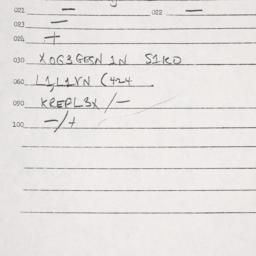 021 — 022 —
023 —
024 +
030 XOG3GESN IN S1KO
060 L1,L1VN (424
090 KREPL3X /—
100 —/+